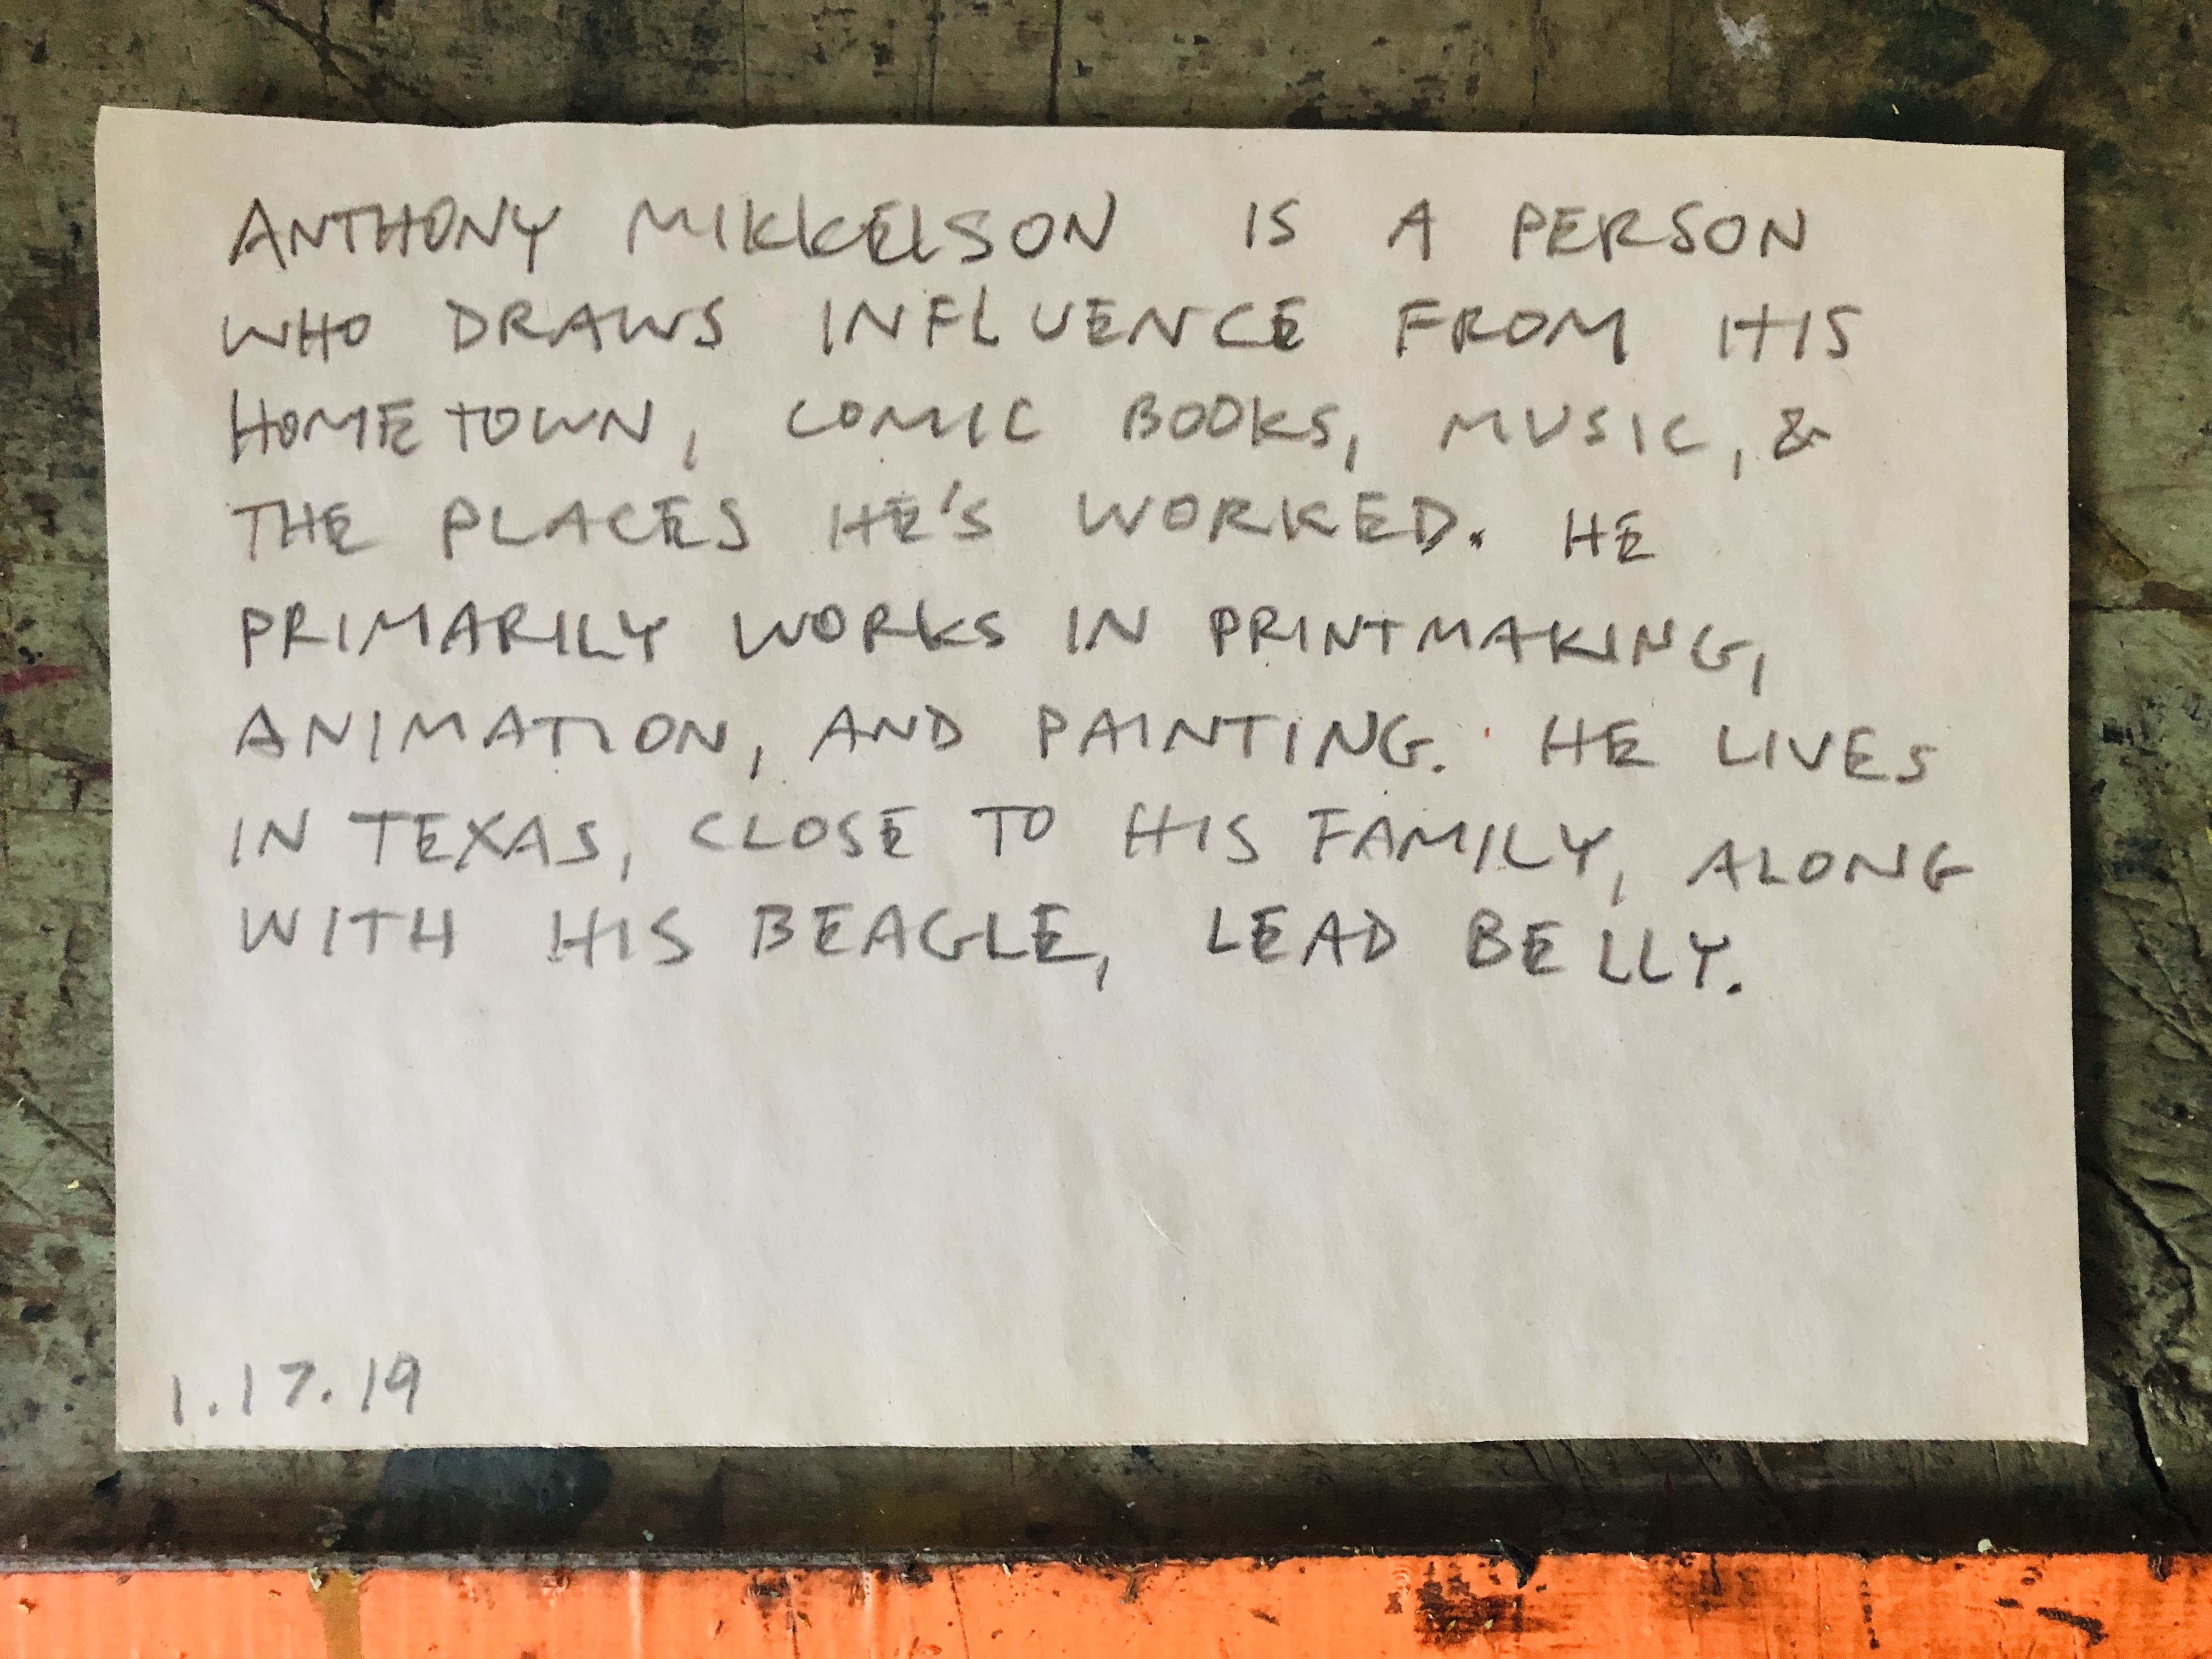 ANTHONY MIKKELSON IS A PERSON
WHO DRAWS INFLUENCE FROM HIS
HOMETOWN, COMIC BOOKS, MUSIC, &
THE PLACES HE'S WORKED. HE
PRIMARILY WORKS IN PRINTMAKING,
ANIMATION, AND PAINTING. HE LIVES
IN TEXAS, CLOSE TO HIS FAMILY, ALONG
WITH HIS BEAGLE, LEAD BELLY.
1.17.19